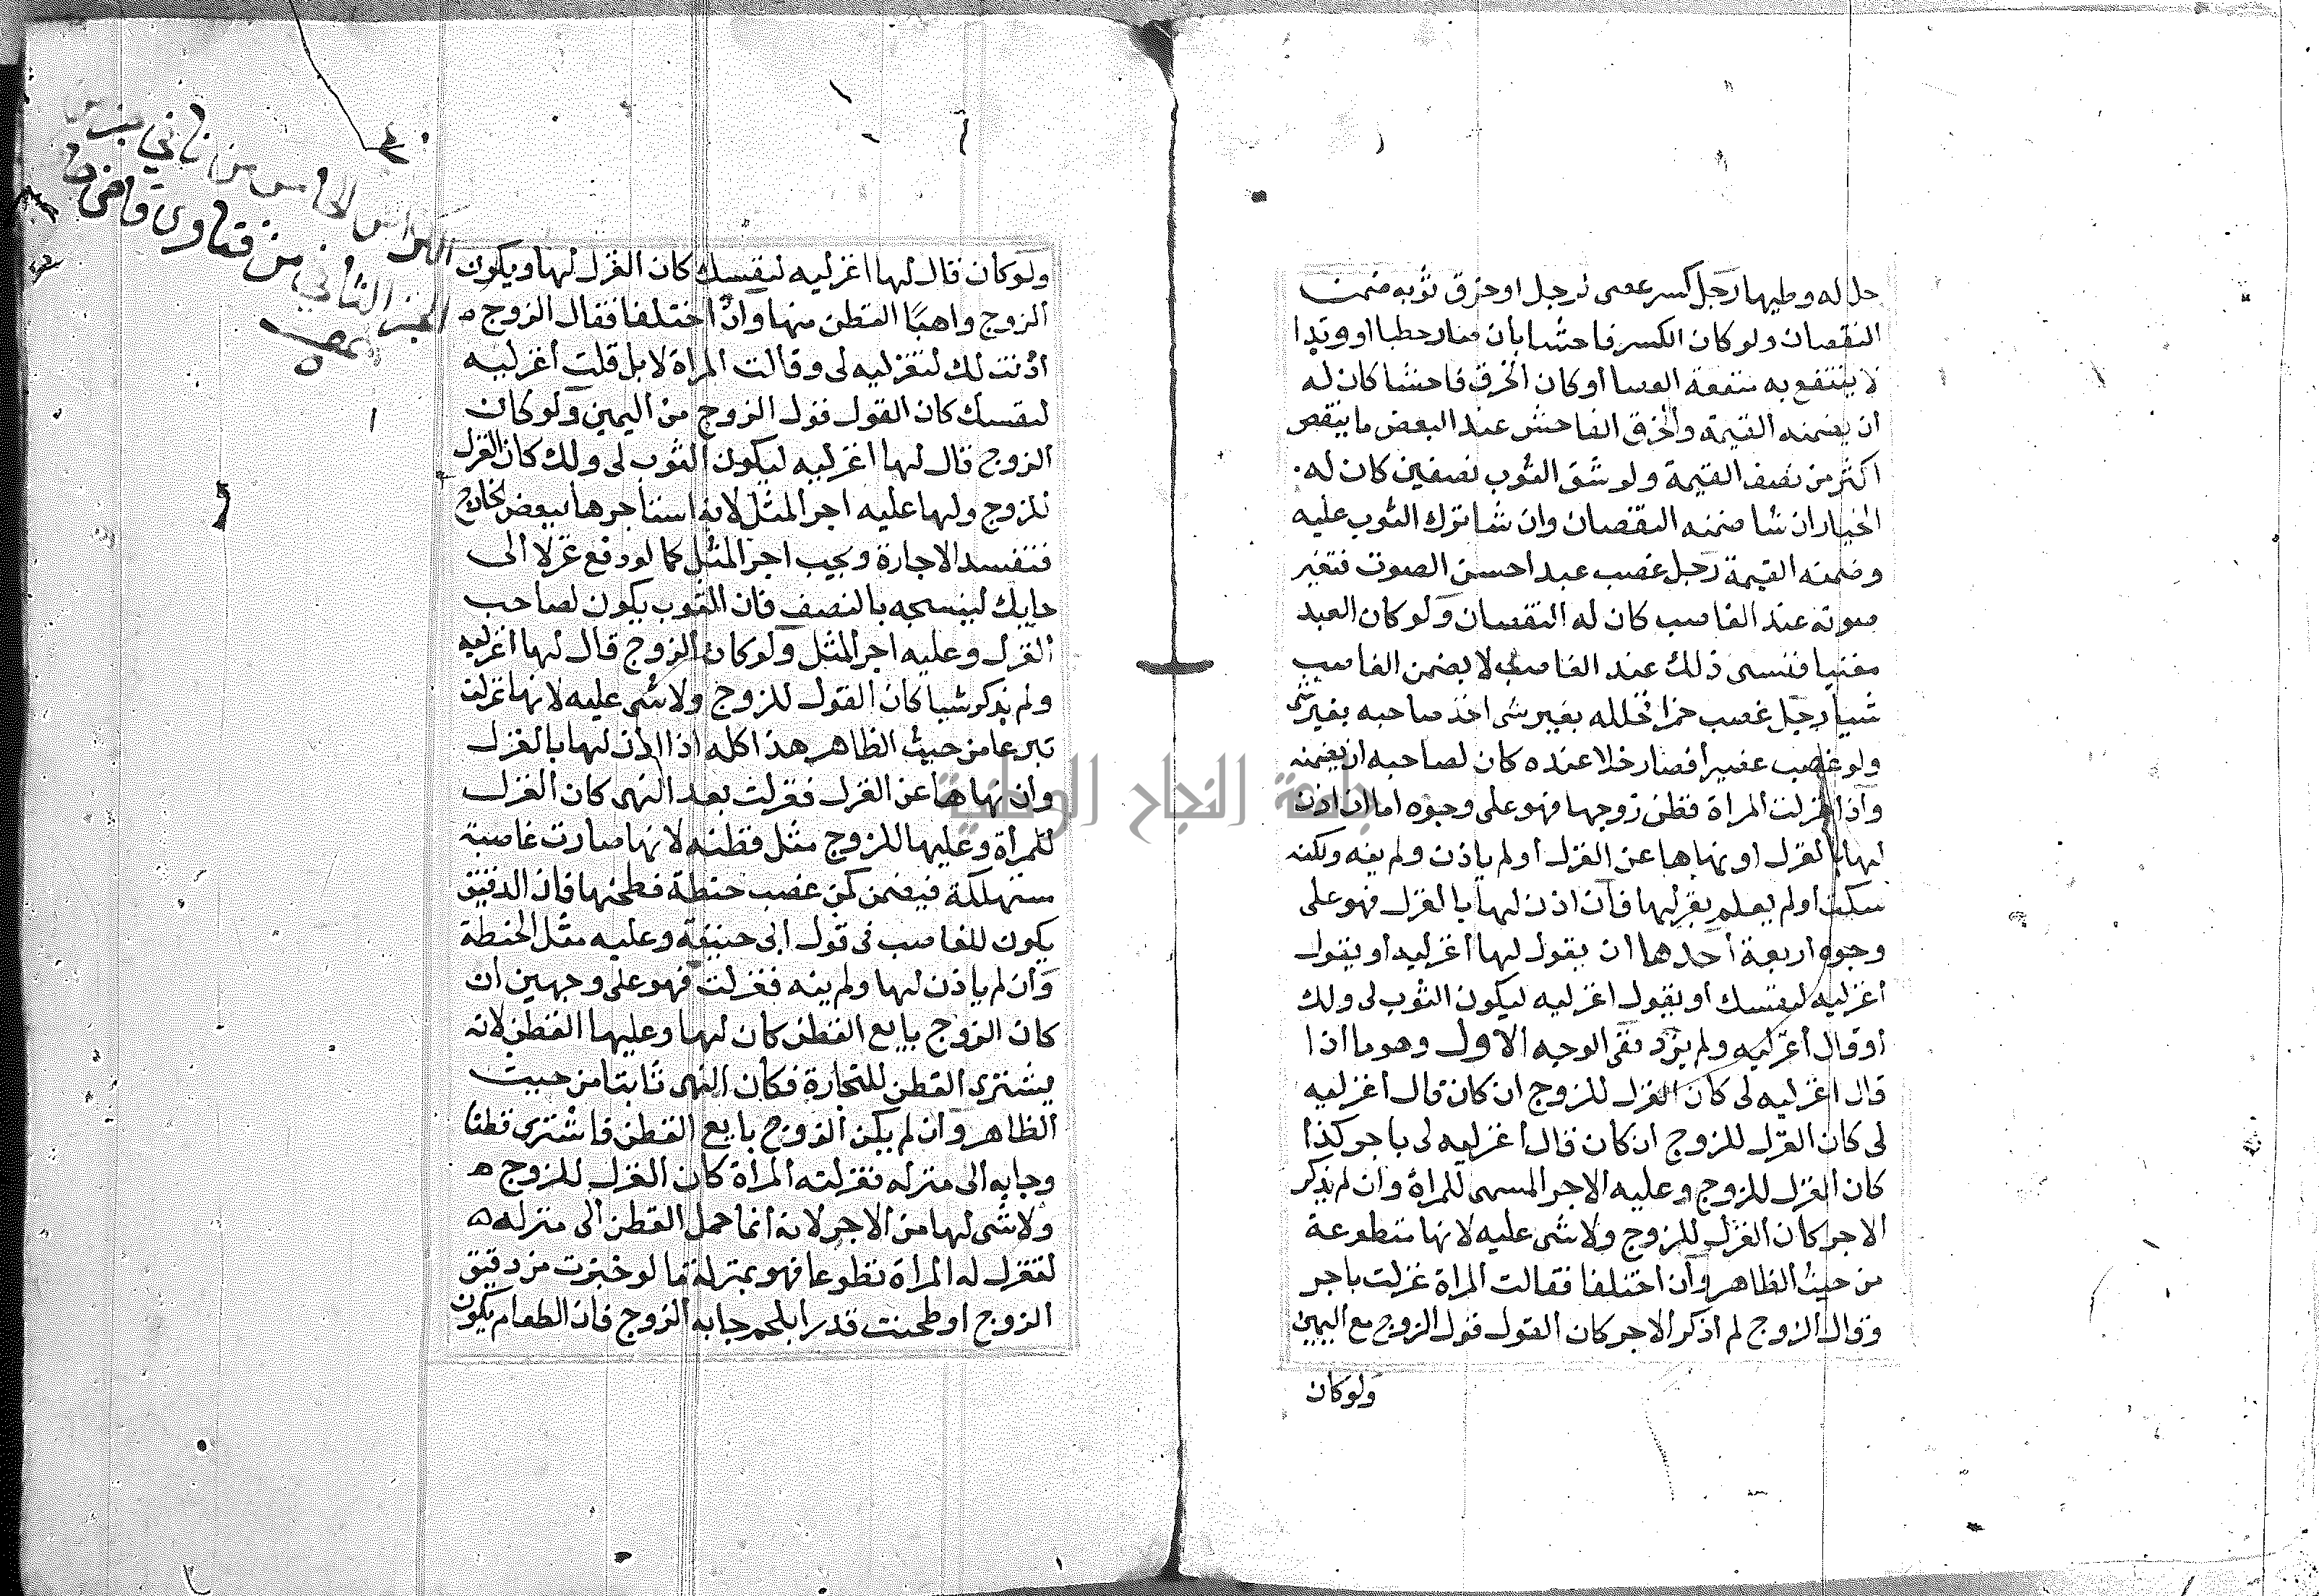 حل له وطيها رجل كسر عصى لرجل او خرق ثوبه ضمن
النقصان ولو كان الكسر فاحشا بأن صار حطبا او وتدا
لا ينتفع به منفعة العصا أو كان الخرق فاحشا كان له
ان يضمنه القيمة والخرق الفاحش عند البعض ما ينقص
اكثر من نصف القيمة ولو شق الثوب نصفين كان له
الخيار ان شا ضمنه النقصان وان شا ترك الثوب عليه
وضمنه القيمة رجل غصب عبدا حسن الصوت فتغير
صوته عند الغاصب كان له النقصان ولو كان العبد
مغنيا فنسى ذلك عند الغاصب لا يضمن الغاصب
شيا رجل غصب خمرا فخلله بغير شى اخذ صاحبه بغير شى
ولو غصب عصيرا فصار خلا عنده كان لصاحبه ان يضمنه
وأذا غزلت المراة قطن زوجها فهو على وجوه اما ان اذن
لها بالغزل او نهاها عن الغزل أو لم ياذن ولم ينه ولكنه
سكت أو لم يعلم بغزلها فان اذن لها بالغزل فهو على
وجوه اربعة أحدها ان يقول لها أغزليه أو يقول
أغزليه لنفسك أو يقول اغزليه ليكون الثوب لى ولك
أو قال أغزليه ولم يزد ففى الوجه الاول وهو ما اذا
قال اغزليه لى كان الغزل للزوج ان كان قال أغزليه
لى كان الغزل للزوج ان كان قال أغزليه لى باجر كذا
كان الغزل للزوج وعليه الاجر المسمى للمراة وان لم يذكر
الاجر كان الغزل للزوج ولا شى عليه لانها متطوعة
من حيث الظاهر وأن اختلفا فقالت المراة غزلت باجر
وقال الزوج لم أذكر الاجر كان القول قول الزوج مع اليمين
ولو كان
الكراس الخامس من
الجز الثانى من فتاوى قاضى خان
ولو كان قال لها اغزليه لنفسك كان الغزل لها ويكون
الزوج واهبا القطن منها وان اختلفا فقال الزوج
أذنت لك لتغزليه لى وقالت المراة لا بل قلت أغزليه
لنفسك كان القول قول الزوج من اليمين ولو كان
الزوج قال لها اغزليه ليكون الثوب لى ولك كان الغزل
للزوج ولها عليه اجر المثل لانه استاجرها ببعض الخارج
فتفسد الاجارة ويجب اجر المثل كما لو دفع غزلا الى
حايك لينسجه بالنصف فان الثوب يكون لصاحب
الغزل وعليه اجر المثل ولو كان الزوج قال لها اغزليه
ولم يذكر شيا كان القول للزوج ولا شى عليه لانها غزلت
تبرعا من حيث الظاهر هذا كله اذا اذن لها بالغزل
وان نهاها عن الغزل فغزلت بعد النهى كان الغزل
للمرأة وعليها للزوج مثل قطنه لانها صارت غاصبة
مستهلكة فيضمن كمن غصب حنطة فطحنها فان الدقيق
يكون للغاصب فى قول ابى حنيفة وعليه مثل الحنطة
وأن لم ياذن لها ولم ينه فغزلت فهو على وجهين ان
كان الزوج بايع القطن كان لها وعليها القطن لانه
يشترى القطن للتجارة فكان النهى ثابتا من حيث
الظاهر وان لم يكن الزوج بايع القطن فاشترى قطنا
وجابه الى منزله فغزلته المراة كان الغزل للزوج
ولا شى لها من الاجر لانه أنما حمل القطن الى منزله
لتغزل له المراة تطوعا فهو بمنزلة ما لو خبزت من دقيق
الزوج او طحنت قدرا بلحم جابه الزوج فان الطعام يكون
جامعة النجاح الوطنية